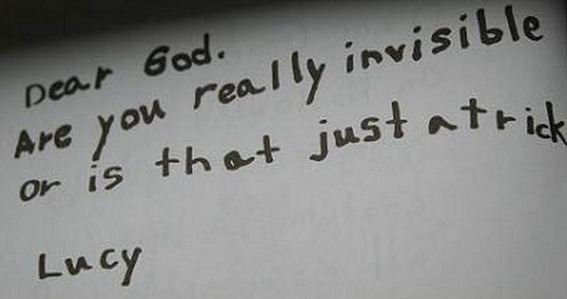 Dear God.
Are you really invisible
or is that just a trick
Lucy